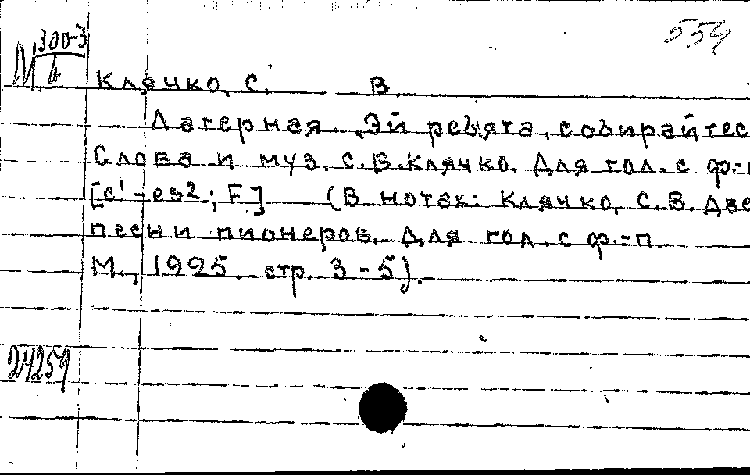 554
М 300-3
6
Клячко, С. В.
Лагерная. „Эй ребята, собирайтес
Слова и муз. С.В.Клячко. Для гол. с ф.-п
[c'-es2; F] (В нотах: Клячко, С.В. Две
песни пионеров. Для гол. с ф.-п.
М., 1925. стр. 3-5).
24259